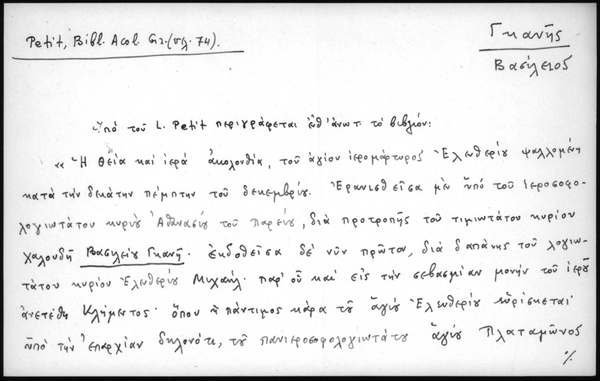 Petit, Bibl. Acol. Gr. (σελ. 74).
Γκανῆς
Βασίλειος
Ὑπό τοῦ L. Petit περιγράφεται ἐθ' ἀνωτ. τό βιβλίον:
«Ἡ θεία καί ἱερά ἀκολουθία, τοῦ ἁγίου ἱερομάρτυρος Ἐλευθερίου ψαλλομένη
κατά τήν δεκάτην πέμπτην τοῦ δεκεμβρίου. Ἐρανισθεῖσα μέν ὑπό τοῦ ἱεροσοφο-
λογιωτάτου κυρίου Ἀθανασίου τοῦ Παρίου, διά προτροπῆς τοῦ τιμιωτάτου κυρίου
χαλουδῆ Βασιλείου Γκανῆ. ἐκδοθεῖσα δέ νῦν πρῶτον, διά δαπάνης τοῦ λογιω-
τάτου κυρίου Ἐλευθερίου Μιχαήλ. παρ' οὗ καί εἰς τήν σεβασμίαν μονήν τοῦ ἱεροῦ
ἀνετέθη Κλήμεντος· ὅπου ἡ πάντιμος κάρα τοῦ ἁγίου Ἐλευθερίου εὑρίσκεται·
ὑπό τήν ἐπαρχίαν δηλονότι, τοῦ πανιεροσοφολογιωτάτου ἁγίου Πλαταμῶνος
%